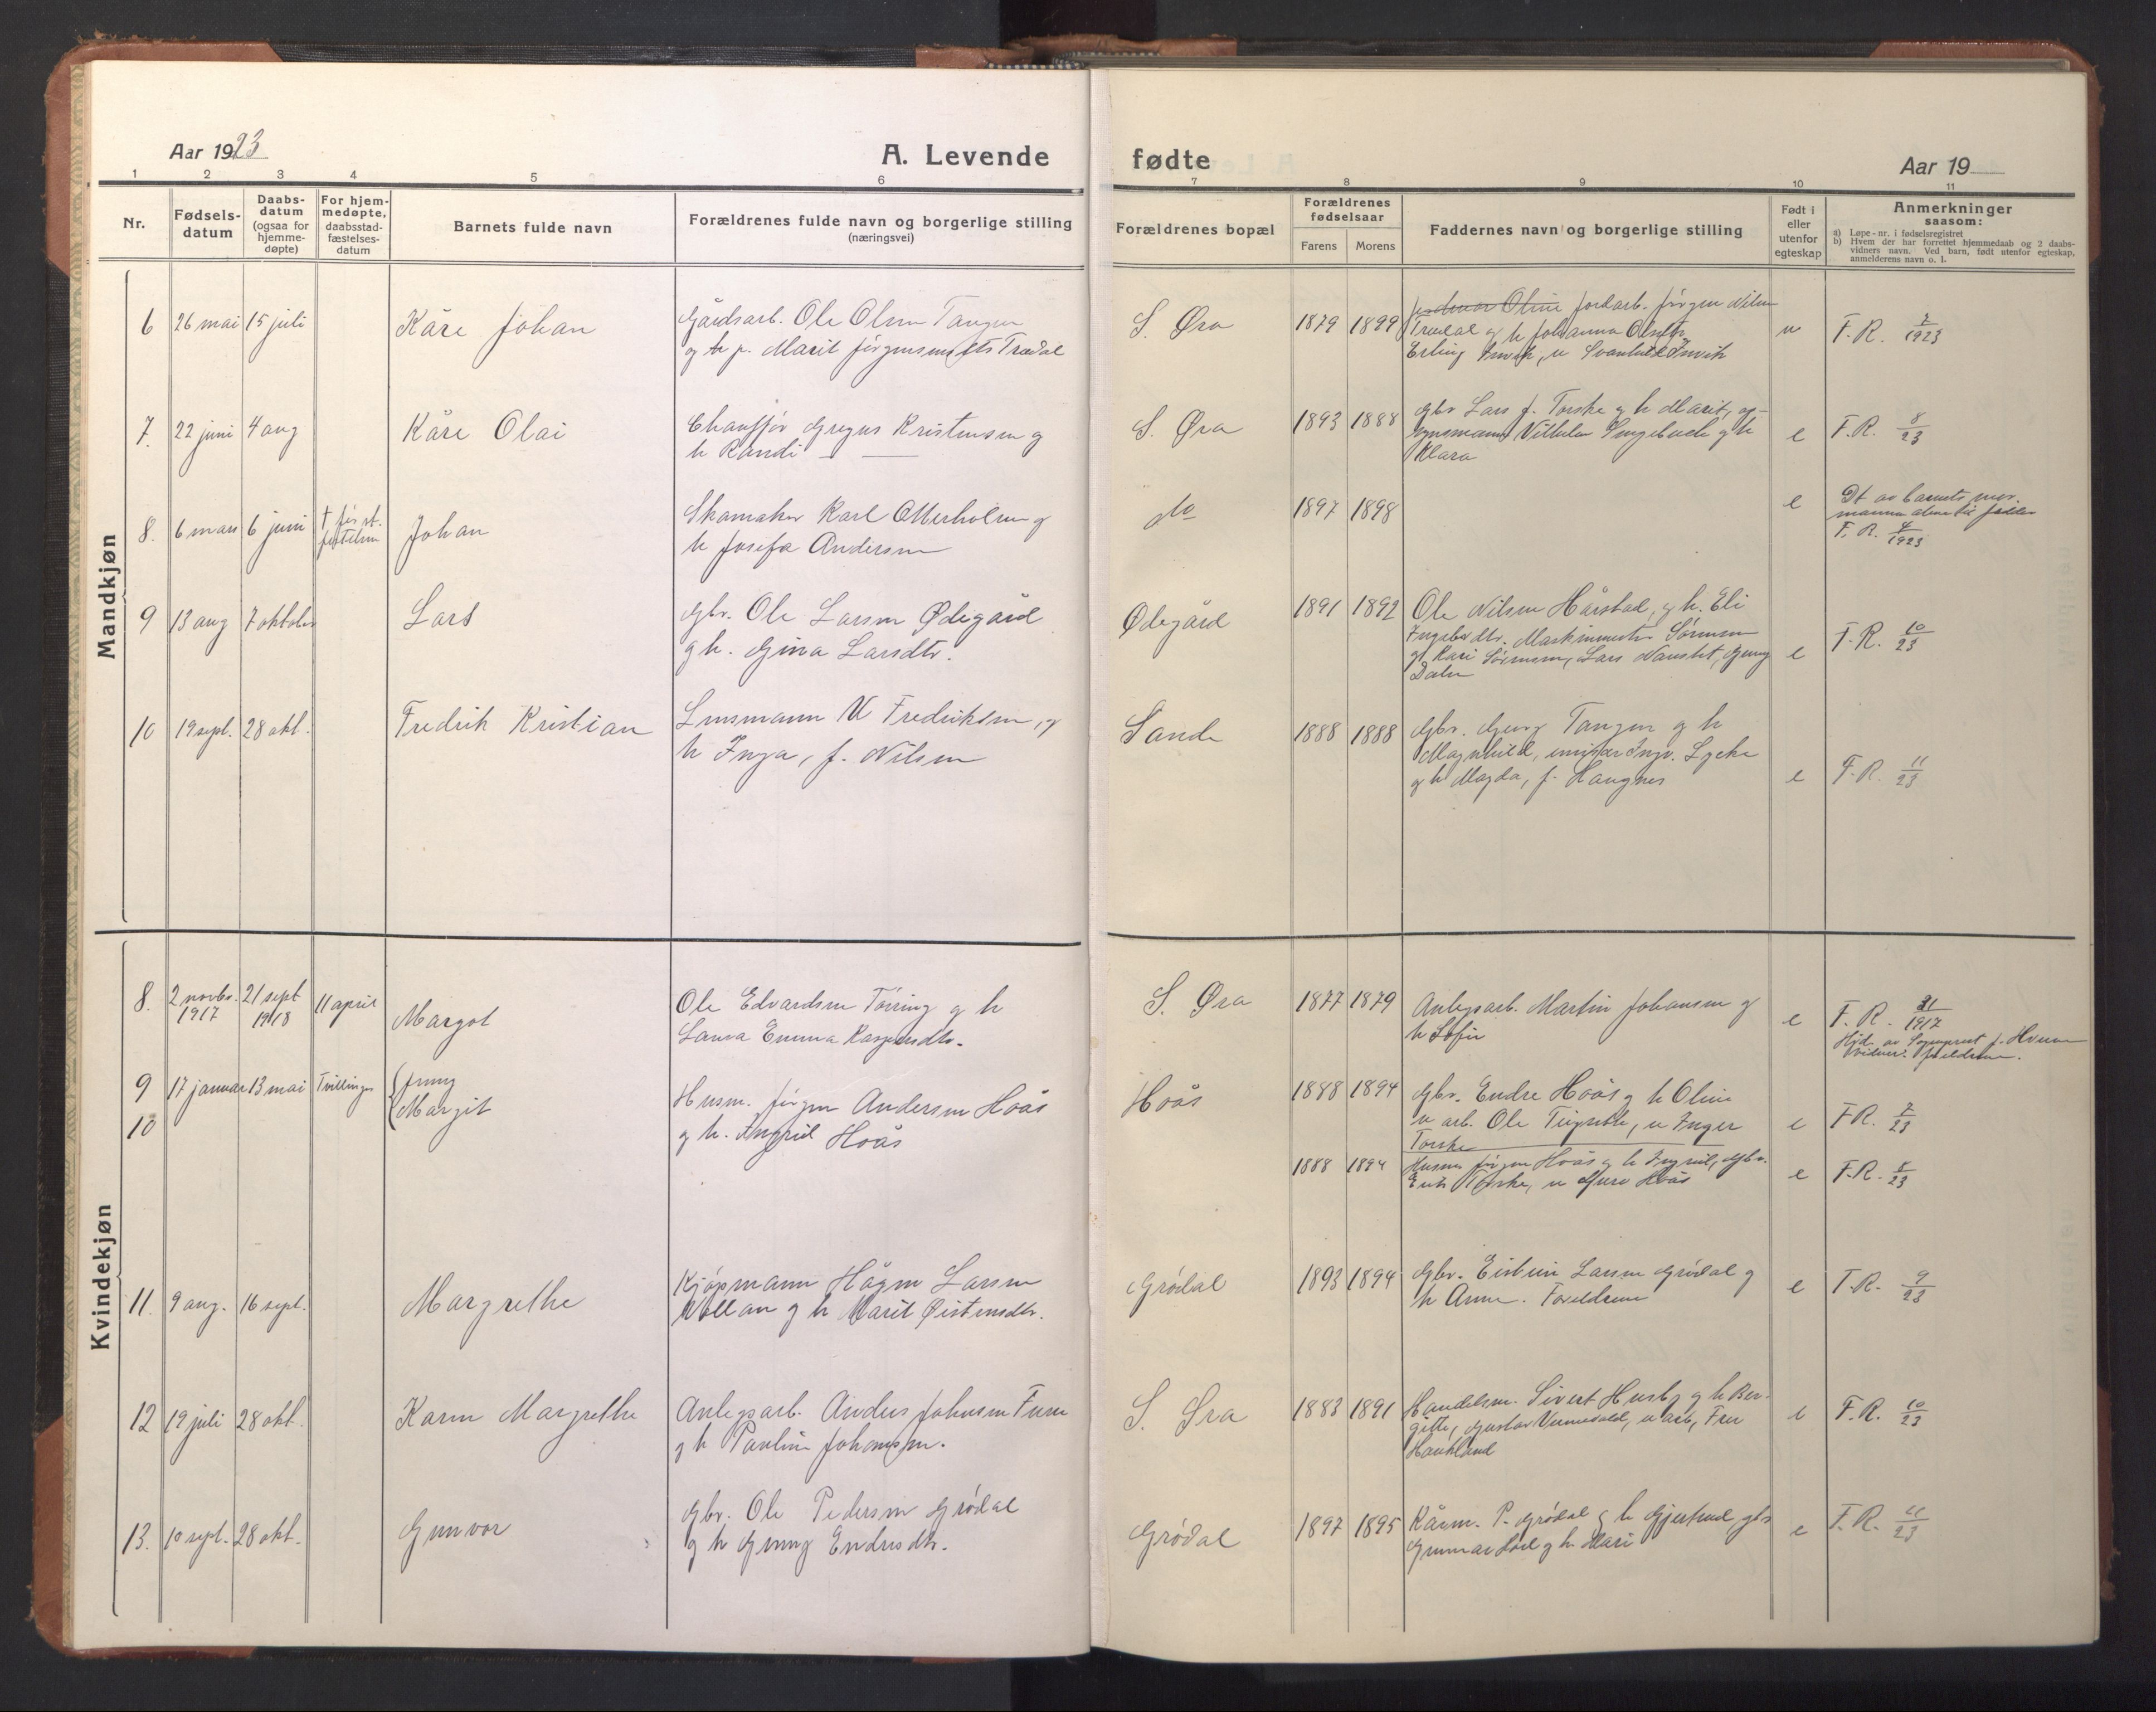 Aar 1923
A. Levende
fødte
Aar 19
1 2 3 4 5 6
7 8 9 10 11
Nr.
Fødsels-
datum
Daabs-
datum
(ogsaa for
hjemme-
døpte)
For hjem-
medøpte,
daabsstad-
fæstelses-
datum
Barnets fulde navn
Forældrenes fulde navn og borgerlige stilling
(næringsvei)
Forældrenes bopæl
Forældrenes
fødselsaar
Farens Morens
Faddernes navn og borgerlige stilling
Født i
eller
utenfor
egteskap
Anmerkninger
saasom:
a) Løpe-nr. i fødselsregistret
b) Hvem der har forrettet hjemmedaab og 2 daabs-
vidners navn. Ved barn, født utenfor egteskap,
anmelderens navn o. l.
Mandkjøn
6 26 mai 15 juli
Kåre Johan
Gårdsarb. Ole Olsen Tangen
og p. Marit Jørgensen Trædal
S. Øra
1879 1899
Oline jordarb. Jørgen Nilsen
Trædal og h Johanna Olsdtr.
Erling Invik, u Svanhild Invik
u
F. R. 7/1923
7. 22 juni 4 aug
Kåre Olai
Chauffør Gregus Kristensen og
h Randi — —
S. Øra
1893 1888
Gbr Lars J. Torske og h Marit, op-
synsmann Vilhelm og h
Klara
e
F.R. 8/23
8. 6 mars 6 juni
† før st.
festelsen
Johan
Skomaker Karl Otterholm og
h Josefa Andersen
do
1897 1898
e
Dt av barnets mor.
F. R. 4/1923
9 13 aug 7 oktober
Lars
Gbr. Ole Larsen Ødegård
og h. Gina Larsdtr.
Ødegård
1891 1892
Ole Nilsen Hårstad, og h. Eli
Ingebr.dtr. Maskinmester Sørensen
og Kari Sørensen, Lars Naustet, Gung
Dalen
e
F.R. 10/23
10 19 sept. 28 okt.
Fredrik Kristian
Lensmann K Fredriksen, og
h Inga, f. Nilsen
Sande
1888 1888
Gbr. Georg Tangen og h
Magnhild, Ingv. Lyche
og h Magda, f. Haugnes
e
F.R. 11/23
Kvindekjøn
8. 2 novbr. 21 sept 11 april
1917 1918
Margot
Ole Edvardsen Tørring og h
Laura Emma Kaspersdtr.
S. Øra
1877 1879
Anlegsarb. Martin Johansen og
h Sofie
e
F. R. 31/1917
Hjd. av Sogneprest J. Hveem
Vidner: foreldrene.
9 17 januar 13 mai Tvillinger
10
Jenny
Margit
Husm. Jørgen Andersen Hoås
og h. Ingrid Hoås
Hoås
1888 1894
Gbr. Endre Hoås og h Oline
u arb. Ole, u Inger
Torske
e
F.R. 7/23
1888 1894
Husm Jørgen Hoås og h Ingrid, Gbr.
Torske, u Guro Hoås
e
F.R. 8/23
11. 9 aug. 16 sept.
Margrethe
Kjøpmann Hågen Larsen
Vollan og h Marit Øistensdtr.
Grødal
1893 1894
Gbr. Eistein Larsen Grødal og
h Anne. Foreldrene
e
F.R. 9/23
12 19 juli 28 okt.
Karen Margrethe
Anlegsarb. Anders Johnsen Fure
og h Pauline Johansen.
S. Øra
1883 1891
Handelsm. Sivert Husby og h Ber-
gitte, Gustav, u arb, Fru
Haukland
e
F.R. 10/23
13. 10 sept. 28 okt.
Gunvor
Gbr. Ole Pedersen Grødal
og h Gunny Endresdtr.
Grødal
1897 1895
Kårm. P. Grødal og h Gjertrud gbr
Gunnar og h Mari
e
F.R. 11/23